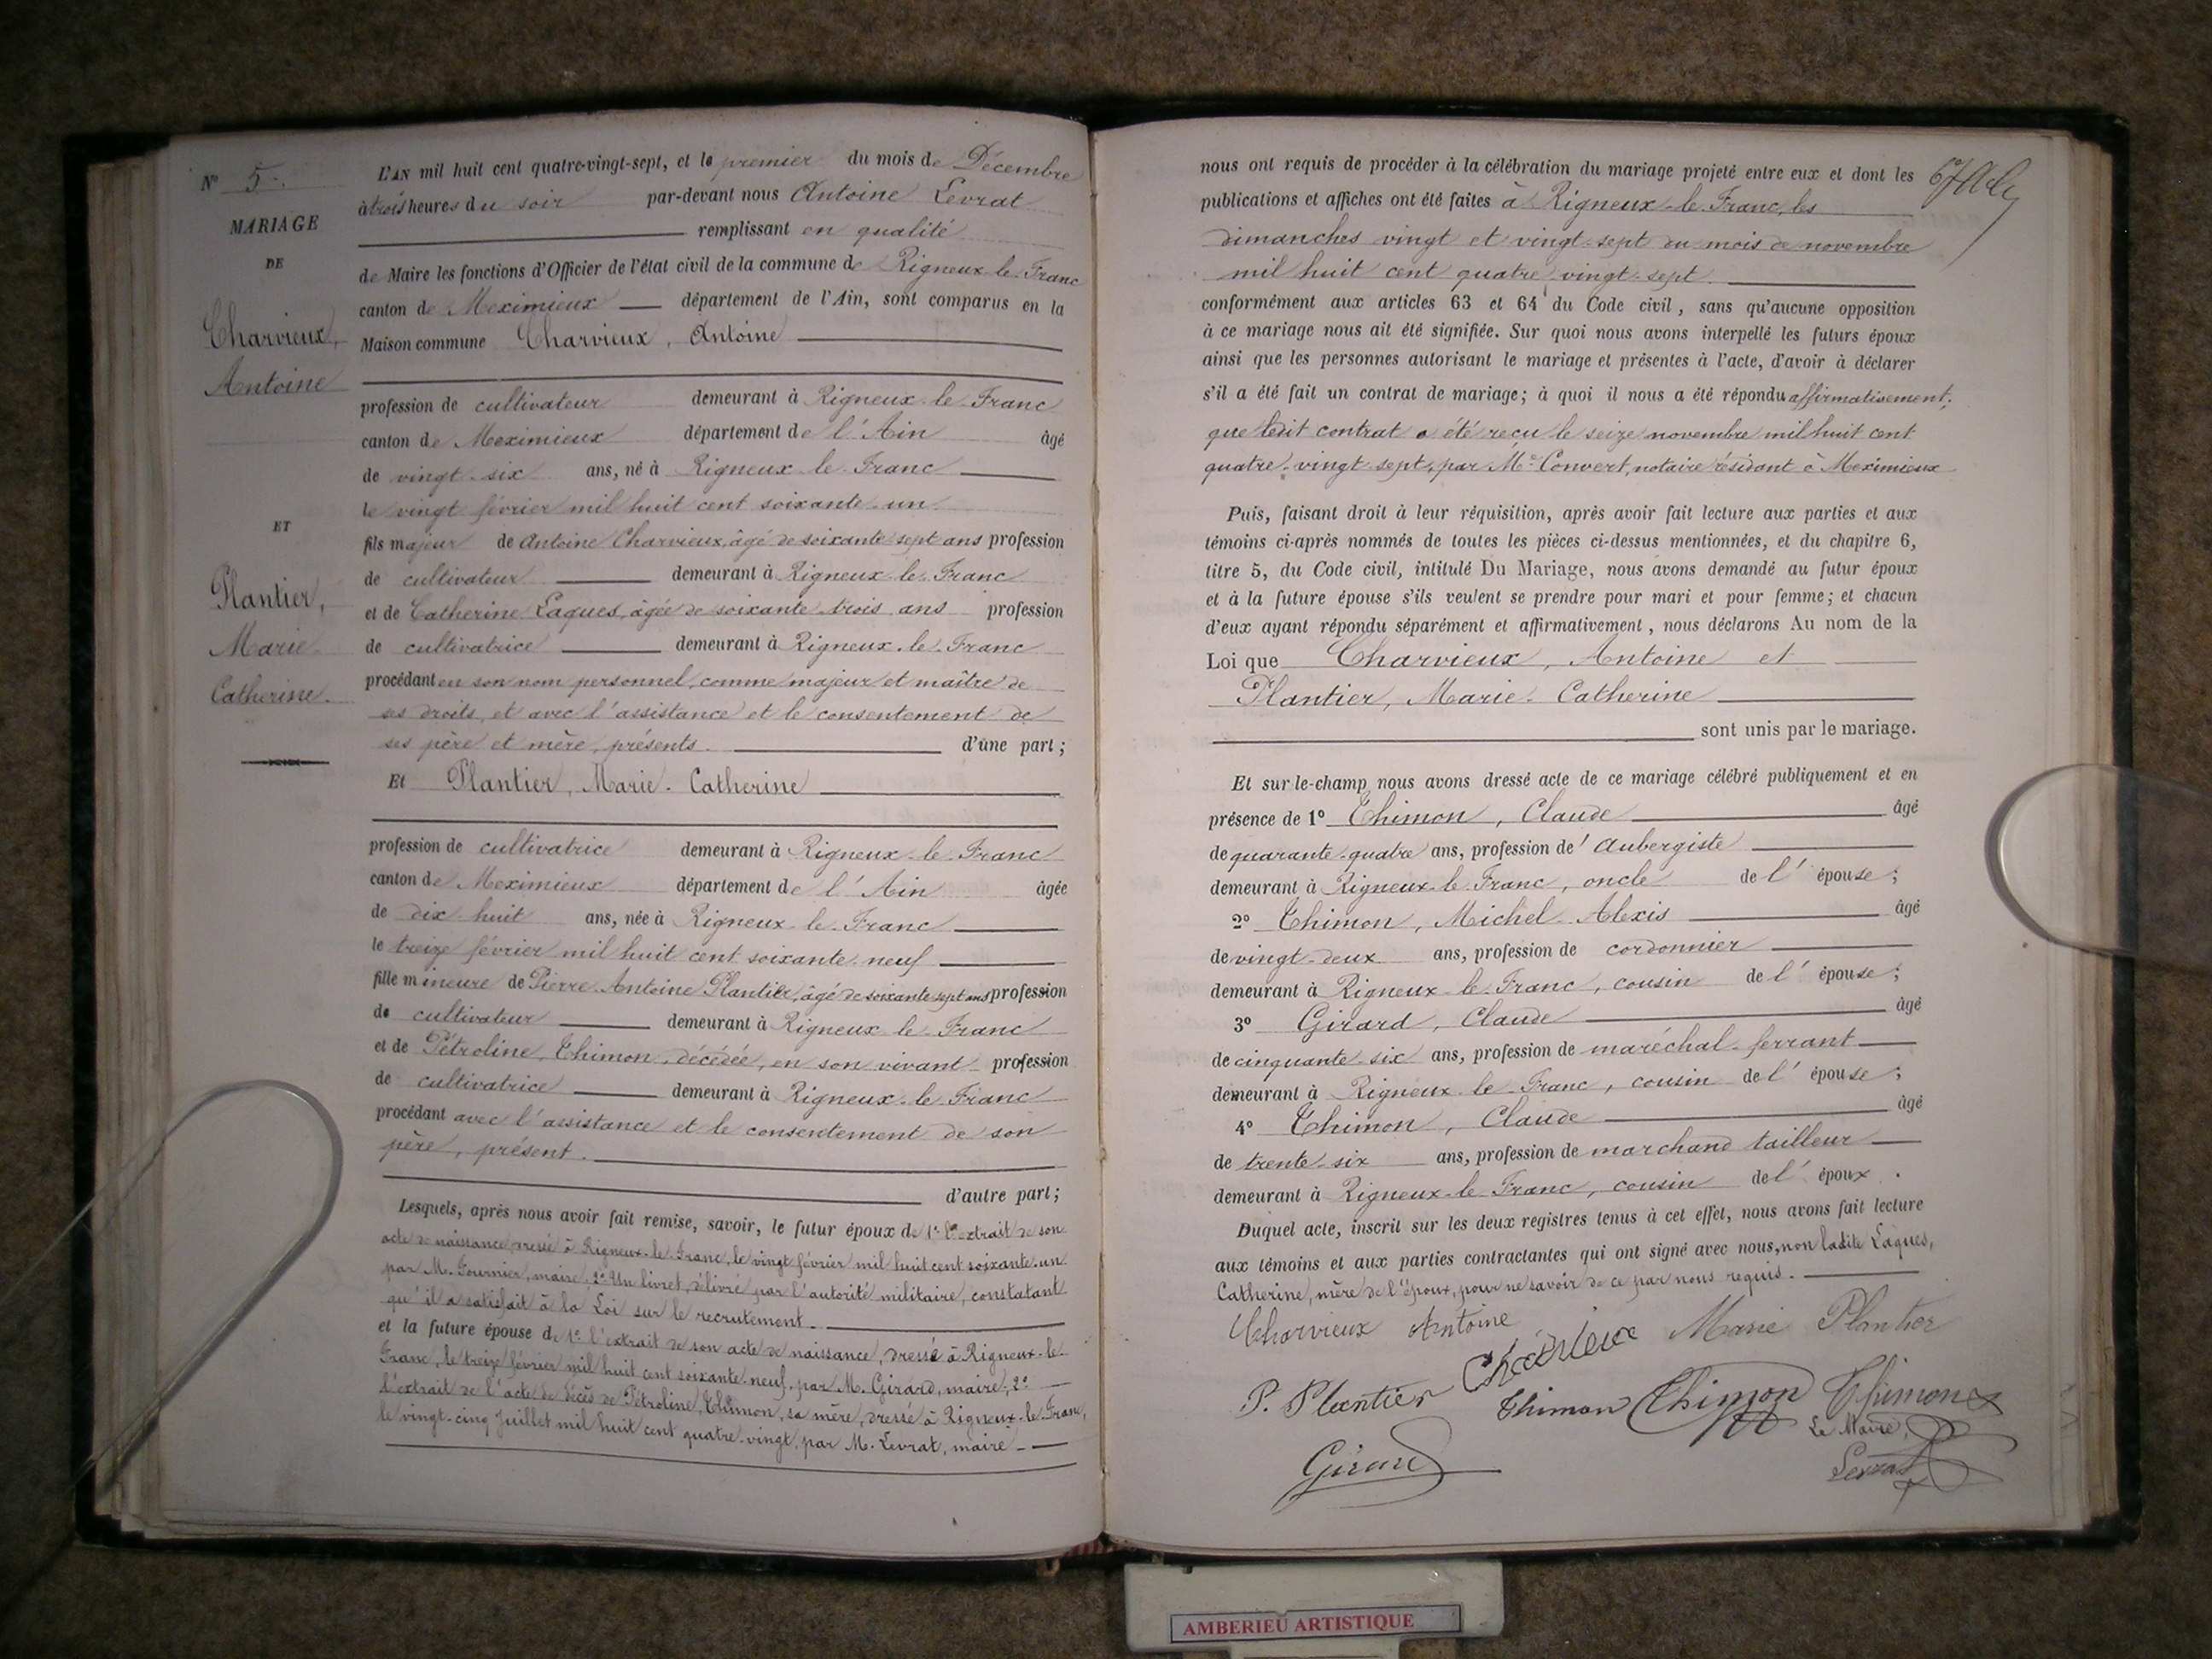 N° 5.
MARIAGE
DE
Charvieux,
Antoine
ET
Plantier,
Marie
Catherine.
L'AN mil huit cent quatre-vingt-sept, et le premier du mois de Décembre
à trois heures du soir par-devant nous Antoine Levrat
remplissant en qualité
de Maire les fonctions d'Officier de l'état civil de la commune de Rigneux-le-Franc
canton de Meximieux département de l'Ain, sont comparus en la
Maison commune Charvieux, Antoine
profession de cultivateur demeurant à Rigneux-le-Franc
canton de Meximieux département de l'Ain âgé
de vingt-six ans, né à Rigneux-le-Franc
le vingt février mil huit cent soixante-un.
fils majeur de Antoine Charvieux, âgé de soixante-sept ans profession
de cultivateur demeurant à Rigneux-le-Franc
et de Catherine Laques, âgée de soixante-trois ans profession
de cultivatrice demeurant à Rigneux-le-Franc
procédant en son nom personnel, comme majeur et maître de
ses droits, et avec l'assistance et le consentement de
ses père et mère, présents. d'une part;
Et Plantier, Marie-Catherine
profession de cultivatrice demeurant à Rigneux-le-Franc
canton de Meximieux département de l'Ain âgée
de dix-huit ans, née à Rigneux-le-Franc
le treize février mil huit cent soixante-neuf
fille mineure de Pierre-Antoine Plantier, âgé de soixante-sept ans profession
de cultivateur demeurant à Rigneux-le-Franc
et de Pétroline Thimon, décédée, en son vivant profession
de cultivatrice demeurant à Rigneux-le-Franc
procédant avec l'assistance et le consentement de son
père, présent.
d'autre part;
Lesquels, après nous avoir fait remise, savoir, le futur époux de 1° l'extrait de son
acte de naissance, dressé à Rigneux-le-Franc, le vingt février mil huit cent soixante-un
par M. Fournier, maire; 2° Un livret, délivré par l'autorité militaire, constatant
qu'il a satisfait à la Loi sur le recrutement.
et la future épouse de 1° l'extrait de son acte de naissance, dressé à Rigneux-le-
Franc, le treize février mil huit cent soixante-neuf, par M. Girard, maire; 2°
l'extrait de l'acte de décès de Pétroline Thimon, sa mère, dressé à Rigneux-le-Franc,
le vingt-cinq Juillet mil huit cent quatre-vingt, par M. Levrat, maire.
nous ont requis de procéder à la célébration du mariage projeté entre eux et dont les
publications et affiches ont été faites à Rigneux-le-Franc, les
dimanches vingt et vingt-sept du mois de novembre
mil huit cent quatre-vingt-sept.
conformément aux articles 63 et 64 du Code civil, sans qu'aucune opposition
à ce mariage nous ait été signifiée. Sur quoi nous avons interpellé les futurs époux
ainsi que les personnes autorisant le mariage et présentes à l'acte, d'avoir à déclarer
s'il a été fait un contrat de mariage; à quoi il nous a été répondu affirmativement;
que ledit contrat a été reçu le seize novembre mil huit cent
quatre-vingt-sept, par Me Convert, notaire résidant à Meximieux
Puis, faisant droit à leur réquisition, après avoir fait lecture aux parties et aux
témoins ci-après nommés de toutes les pièces ci-dessus mentionnées, et du chapitre 6,
titre 5, du Code civil, intitulé Du Mariage, nous avons demandé au futur époux
et à la future épouse s'ils veulent se prendre pour mari et pour femme; et chacun
d'eux ayant répondu séparément et affirmativement, nous déclarons Au nom de la
Loi que Charvieux, Antoine et
Plantier, Marie-Catherine
sont unis par le mariage.
Et sur-le-champ nous avons dressé acte de ce mariage célébré publiquement et en
présence de 1° Thimon, Claude âgé
de quarante-quatre ans, profession de d'Aubergiste
demeurant à Rigneux-le-Franc, oncle de l'épouse;
2° Thimon, Michel-Alexis âgé
de vingt-deux ans, profession de cordonnier
demeurant à Rigneux-le-Franc, cousin de l'épouse;
3° Girard, Claude âgé
de cinquante-six ans, profession de maréchal-ferrant
demeurant à Rigneux-le-Franc, cousin de l'épouse;
4° Thimon, Claude âgé
de trente-six ans, profession de marchand tailleur
demeurant à Rigneux-le-Franc, cousin de l'époux.
Duquel acte, inscrit sur les deux registres tenus à cet effet, nous avons fait lecture
aux témoins et aux parties contractantes qui ont signé avec nous, non ladite Laques,
Catherine, mère de l'époux, pour ne savoir de ce par nous requis.
Charvieux Antoine Charvieux Marie Plantier
P. Plantier Thimon Thimon Thimon
Le Maire,
Girard Levrat
AMBERIEU ARTISTIQUE